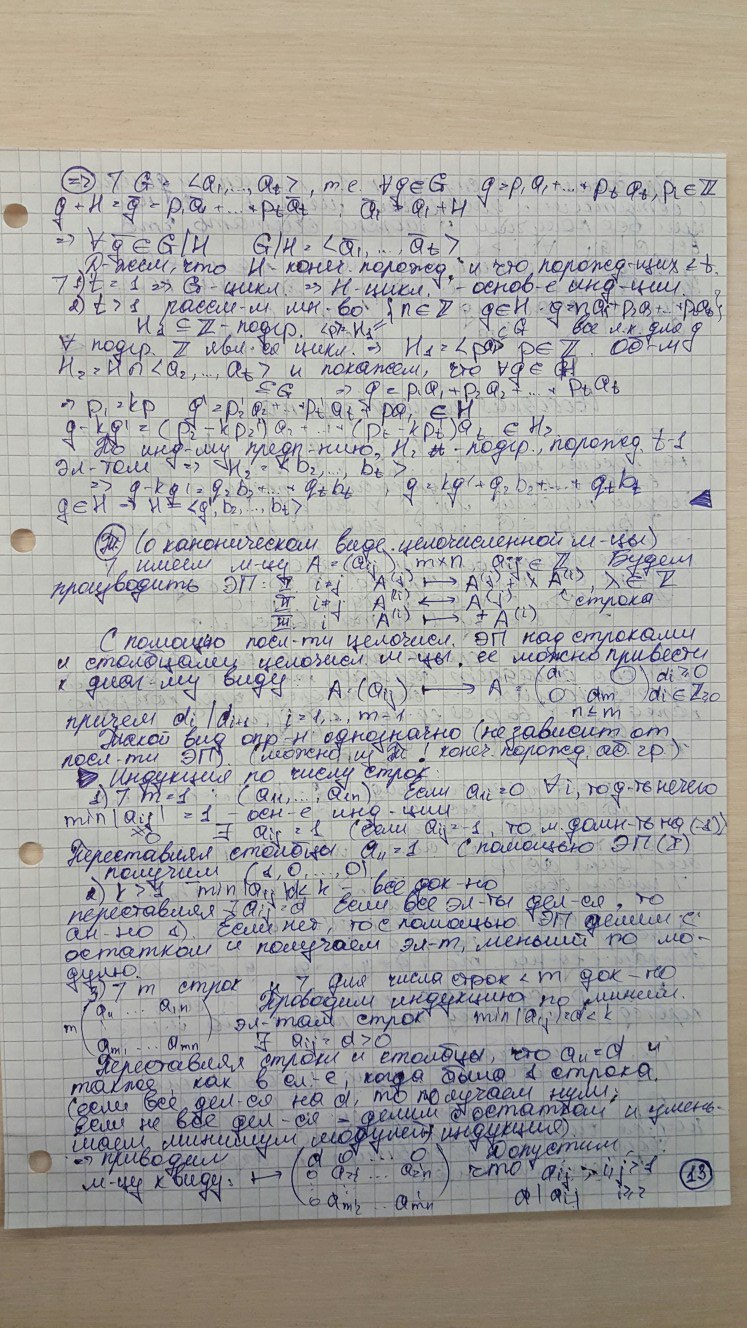 ⇒ ] G = <a₁, ..., a_t>, т.е. ∀g∈G g = p₁a₁ + ... + p_t a_t, p_i ∈ ℤ
g + H = ḡ = p₁ā₁ + ... + p_t ā_t, ā₁ = a₁ + H
⇒ ∀ḡ ∈ G/H G/H = <ā₁, ..., ā_t>
Д-жем, что H - конеч. порожд. и что порожд-щих ≤ t.
] 1) t = 1 ⇒ G - цикл. ⇒ H - цикл. - основ-е инд-ции
2) t > 1 рассм-м мн-во {n ∈ ℤ g ∈ H : g = na₁ + p₂a₂ + ... + p_t a_t}
H₁ ⊆ ℤ - подгр. ⊆ G все л.к. для g
∀ подгр. ℤ явл-ся цикл. ⇒ H₁ = <p> p ∈ ℤ. Об-м
H₂ = H ∩ <a₂, ..., a_t> и покажем, что ∀g ∈ H
⊆ G ⇒ g = p₁a₁ + p₂a₂ + ... + p_t a_t
⇒ p₁ = kp g' = p₂'a₂ + ... + p_t'a_t + pa₁ ∈ H
g - kg' = (p₂ - kp₂')a₂ + ... + (p_t - kp_t')a_t ∈ H₂
По инд-му предп-нию, H₂ - подгр., порожд. t-1
эл-том ⇒ H₂ = <b₂, ..., b_t>
⇒ g - kg' = g₂b₂ + ... + g_t b_t, g = kg' + g₂b₂ + ... + g_t b_t
g ∈ H ⇒ H = <g', b₂, ..., b_t>
Т. (о каноническом виде целочисленной м-цы)
] имеем м-цу A = (a_ij) m×n a_ij ∈ ℤ Будем
производить ЭП: I i≠j A_(j) ↦ A_(j) + λA^(i), λ ∈ ℤ
II i≠j A^(i) ↔ A^(j) строка
III i A^(i) ↦ ± A^(i)
С помощью посл-ти целочисл. ЭП над строками
и столбцами целочисл м-цы, ее можно привести
к диаг-му виду A = (a_ij) ↦ A = (d₁ 0 d_i ≥ 0
0 d_m) d_i ∈ ℤ≥0
n ≤ m
причем d_i | d_i+1, i = 1, ..., m-1
Такой вид опр-н однозначно (не зависит от
посл-ти ЭП). (можно из Т ! конеч. порожд. аб. гр)
Индукция по числу строк:
1) ] m = 1 : (a₁₁, ..., a₁n) Если a₁i = 0 ∀i, то д-ть нечего
min |a_ij| = 1 - осн-е инд-ции
≠0 ∃ a_ij = 1 (если a_ij = -1, то м. домн-ть на (-1))
Переставляя столбцы a₁₁ = 1 С помощью ЭП (I)
получим (1, 0, ..., 0)
2) k > 1 min |a_ij| < k - всё док-но
переставляя ] a_ij = d Если все эл-ты дел-ся, то
ан-но 1). Если нет, то с помощью ЭП делим с
остатком и получаем эл-т, меньший по мо-
дулю.
3) ] m строк и ] для числа строк < m док-но
m (a₁₁ ... a₁n Проводим индукцию по миним.
эл-там строк min |a_ij| = d < k
a_m1 ... a_mn) ] a_ij = d > 0
Переставляя строки и столбцы, что a₁₁ = d и
также, как в сл-е, когда была 1 строка.
(если все дел-ся на d, то получаем нули,
если не все дел-ся - делим с остатком и умень-
шаем минимум модулей, индукция)
⇒ приводим (d 0 ... 0 Допустим,
м-цу к виду: ↦ 0 a₂₂ ... a₂n что a_ij i, j > 1
0 a_m2 ... a_mn) d | a_ij i ≥ 2
13